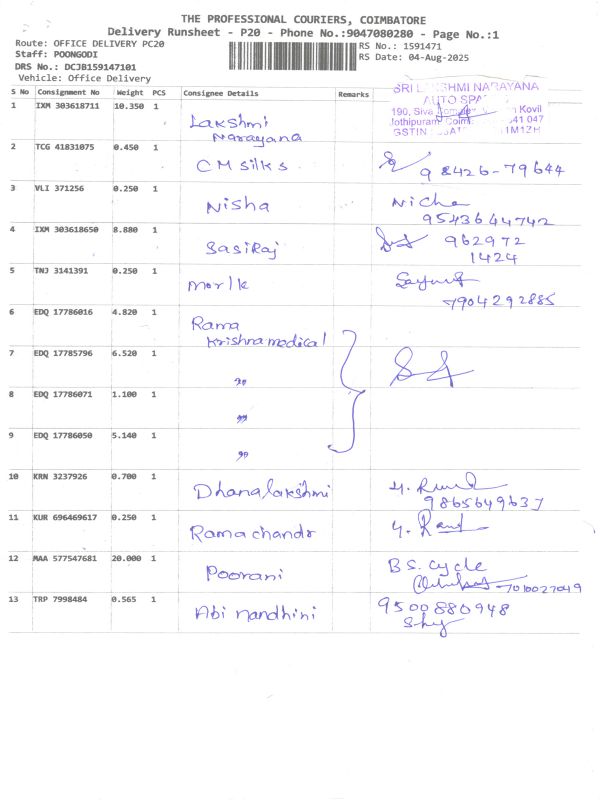 THE PROFESSIONAL COURIERS, COIMBATORE
Delivery Runsheet - P20 - Phone No.:9047080280 - Page No.:1
Route: OFFICE DELIVERY PC20
Staff: POONGODI
DRS No.: DCJB159147101
Vehicle: Office Delivery
RS No.: 1591471
RS Date: 04-Aug-2025
S No Consignment No Weight PCS Consignee Details Remarks
SRI LAKSHMI NARAYANA
AUTO SPA
190, Siva Kovil
Jothipuram, Coim 641 047
GSTIN 1M1ZH
1 IXM 303618711 10.350 1 Lakshmi
Narayana
2 TCG 41831075 0.450 1 CM silks 98426-79644
3 VLI 371256 0.250 1 Nisha Nisha
9543644742
4 IXM 303618650 8.880 1 SasiRaj 962972
1424
5 TNJ 3141391 0.250 1 
7904292885
6 EDQ 17786016 4.820 1 Rama
Krishna medical
7 EDQ 17785796 6.520 1 "
8 EDQ 17786071 1.100 1 "
9 EDQ 17786050 5.140 1 "
10 KRN 3237926 0.700 1 Dhanalakshmi
9865649637
11 KUR 696469617 0.250 1 Ramachandr
12 MAA 577547681 20.000 1 Poorani B S. cycle
7010027049
13 TRP 7998484 0.565 1 Abi nandhini 9500880948